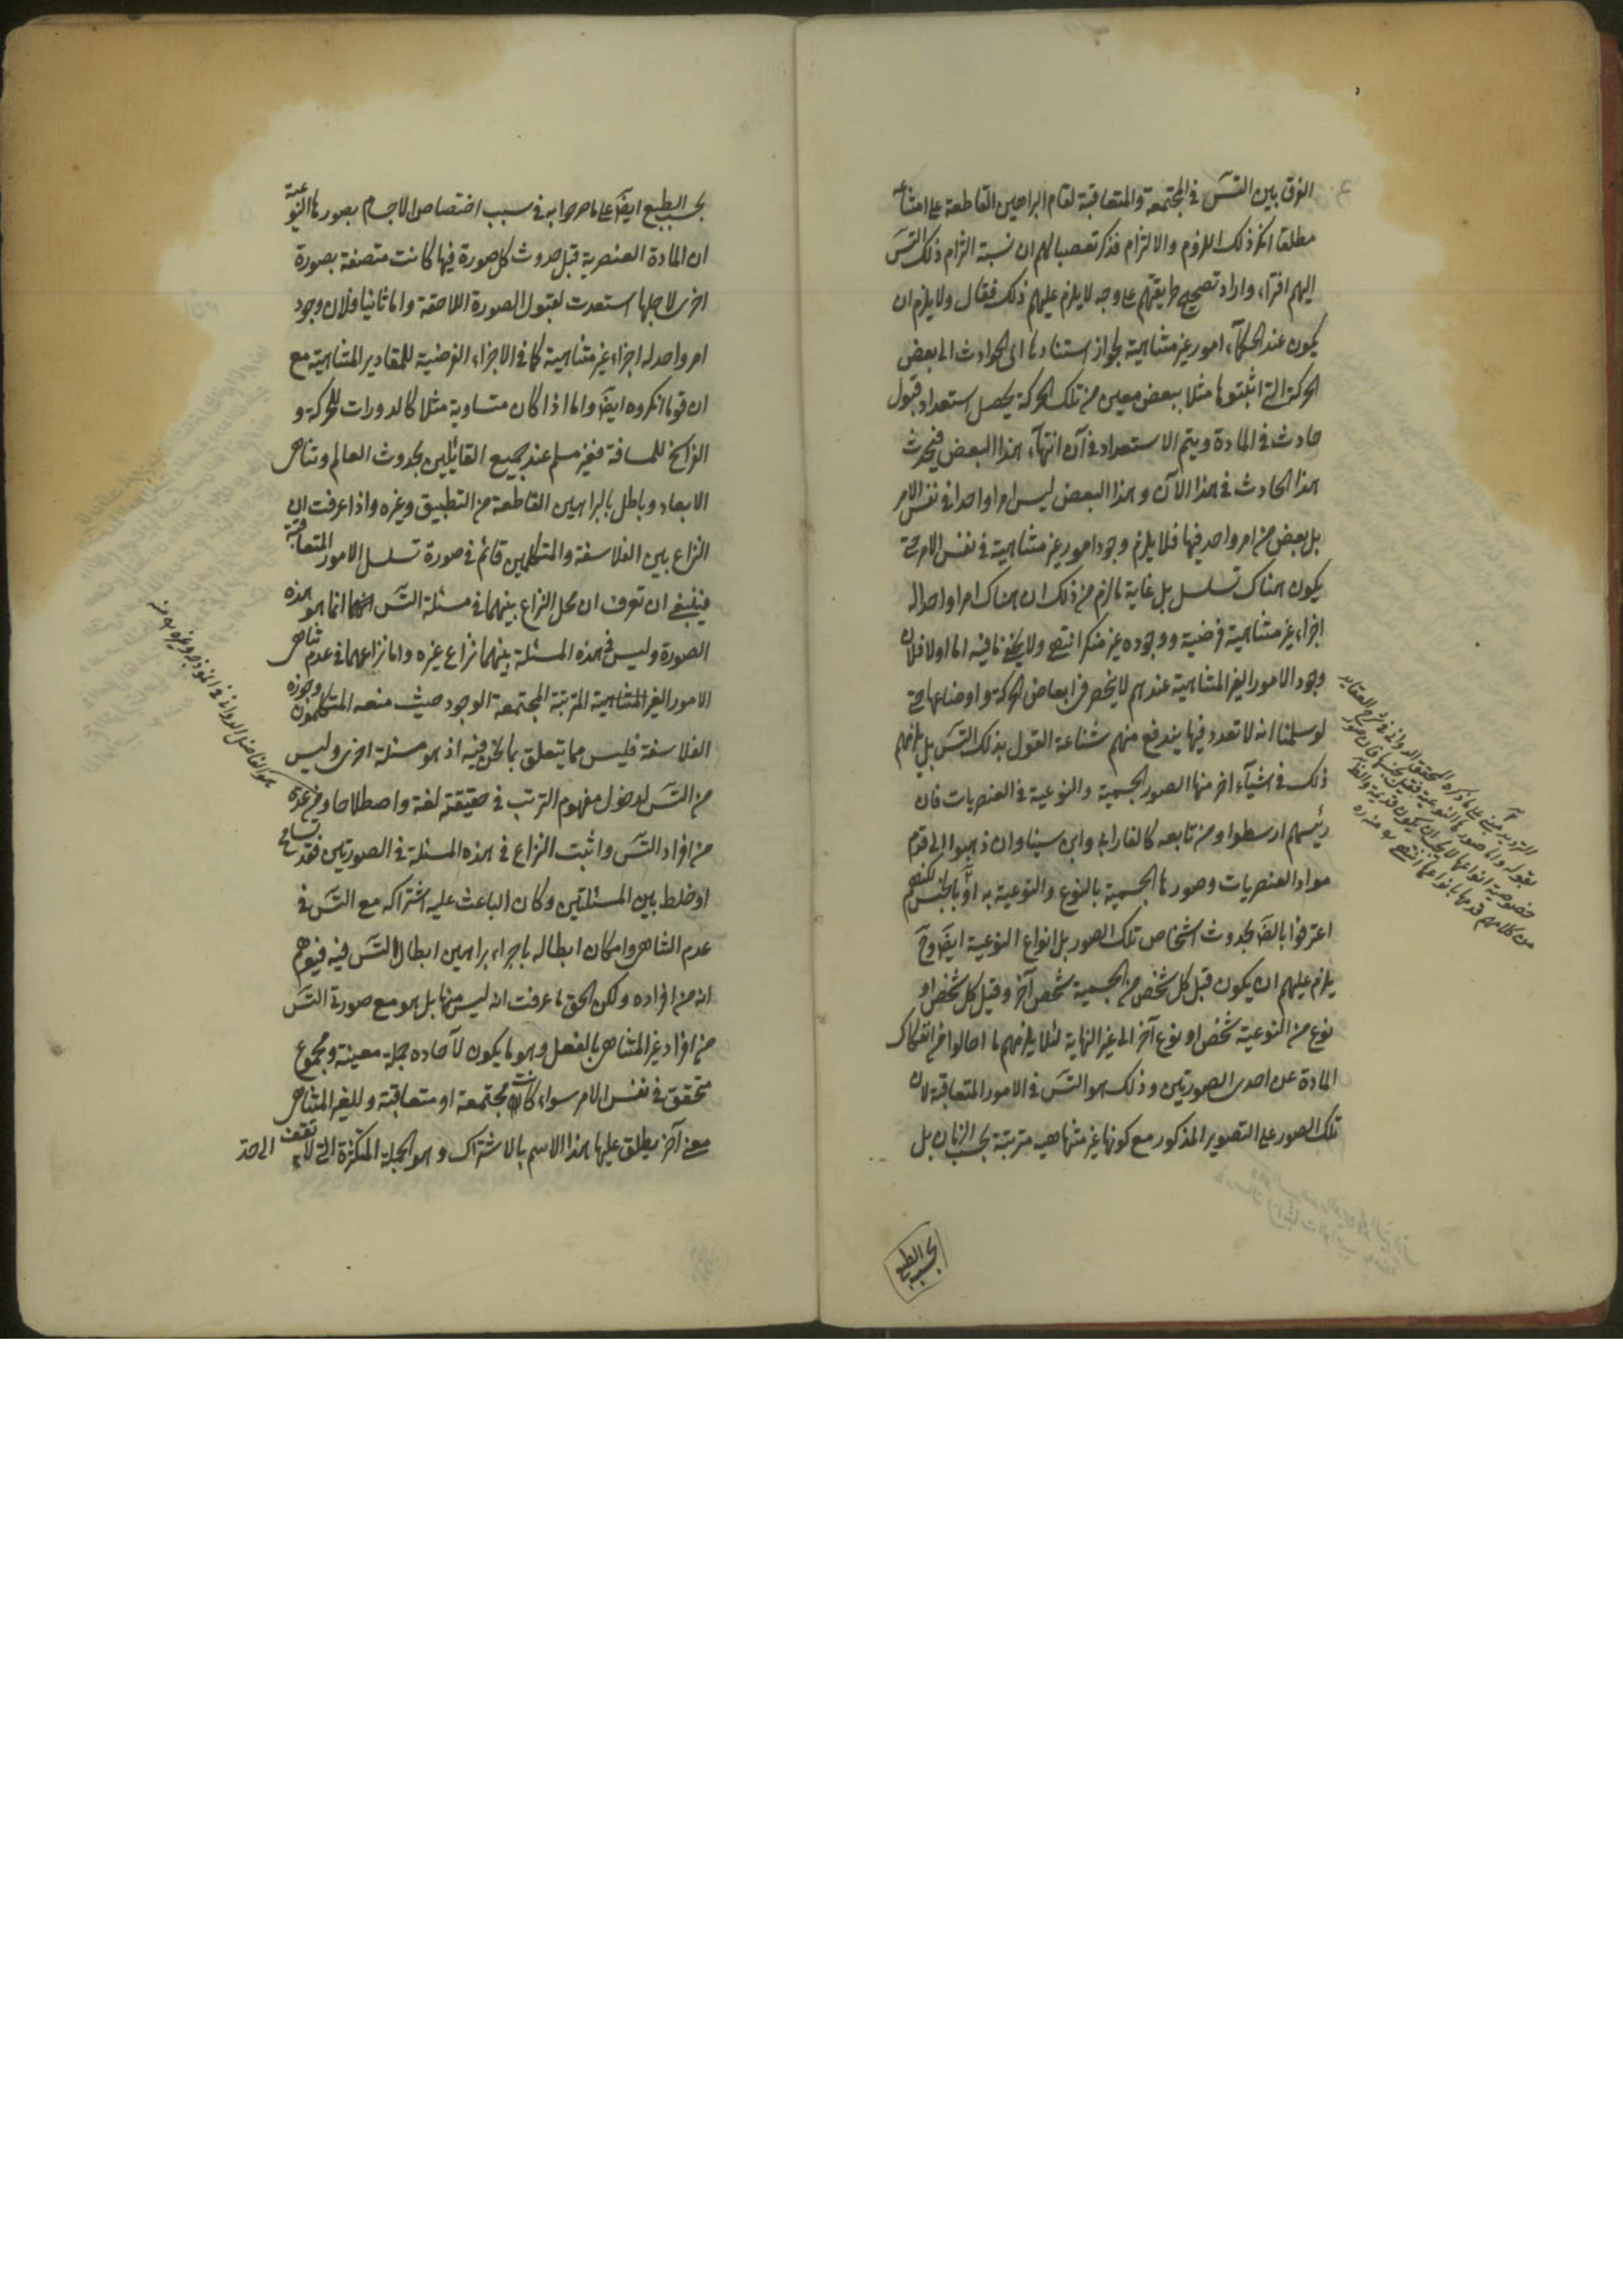 الفرق بين التس في المجتمعة والمتعاقبة لقام البراهين القاطعة على امتناعه
مطلقا انكر ذلك اللزوم والالتزام فذكر تعصبا لهم ان نسبة التزام ذلك التس
اليهم افتراء واراد تصحيح طريقتهم على وجه لا يلزم عليهم ذلك فقال ولا يلزم ان
يكون عند الحكماء امور غير متناهية لجواز استنادها الى الحوادث الى بعض
الحركة التي اثبتوها مثلا ببعض معين من تلك الحركة يحصل استعداد قبول
حادث في المادة ويتم الاستعداد في آن انتهاء هذا البعض فيحدث
هذا الحادث في هذا الآن وهذا البعض ليس امرا واحدا في نفس الامر
بل بعض من امر واحد فيها فلا يلزم وجود امور غير متناهية في نفس الامر حتى
يكون هناك تسلسل بل غاية ما لزم من ذلك ان هناك امرا واحدا له
اجزاء غير متناهية فرضية ووجوده غير منكر انتهى ولا يخفى ما فيه اما اولا فلان
وجود الامور الغير المتناهية عندهم لا ينحصر في ابعاض الحركة واوضاعها حتى
لو سلمنا انه لا تعدد فيها يندفع منهم شناعة القول بذلك التس بل يلزمهم
ذلك في اشياء اخر منها الصور الجسمية والنوعية في العنصريات فان
رئيسهم ارسطوا ومن تابعه كالفارابي وابن سينا وان ذهبوا الى قدم
مواد العنصريات وصورها الجسمية بالنوع والنوعية به او بالجنس لكنهم
اعترفوا بالض بحدوث اشخاص تلك الصور بل انواع النوعية ايض وح
يلزم عليهم ان يكون قبل كل شخص من الجسمية شخص آخر وقبل كل شخص او
نوع من النوعية شخص او نوع آخر الى غير النهاية لئلا يلزمهم ما احالوا من انفكاك
المادة عن احدى الصورتين وذلك هو التس في الامور المتعاقبة لان
تلك الصور على التصوير المذكور مع كونها غير متناهية مترتبة بحسب الزمان بل
بحسب الطبع
الترديد مبني على ما ذكره المحقق الدواني في شرح العقايد
بقوله واما صورها النوعية فقديمة بجنسها فان صور
خصوصية انواعها لا يجب ان يكون قديمة والظ
من كلامهم قدمها بانواعها انتهى منه ره
بحسب الطبع ايض على ما صرحوا به في سبب اختصاص الاجسام بصورها النوعية
ان المادة العنصرية قبل حدوث كل صورة فيها كانت متصفة بصورة
اخرى لاجلها استعدت لقبول الصورة اللاحقة واما ثانيا فلان وجود
امر واحد له اجزاء غير متناهية كما في الاجزاء الفرضية للمقادير المتناهية مع
ان قوما انكروه ايض واما اذا كان متساوية مثلا كالدورات للحركة و
الفراسخ للمسافة فغير مسلم عند جميع القائلين بحدوث العالم وتناهي
الابعاد وباطل بالبراهين القاطعة من التطبيق وغيره واذا عرفت ان
النزاع بين الفلاسفة والمتكلمين قائم في صورة تسلسل الامور المتعاقبة
فينبغي ان تعرف ان محل النزاع بينهما في مسئلة التس انما هو هذه
الصورة وليس في هذه المسئلة بينهما نزاع غيره واما نزاعهما في عدم تناهي
الامور الغير المتناهية المترتبة المجتمعة الوجود حيث منعه المتكلمون وجوزه
الفلاسفة فليس مما يتعلق بما نحن فيه اذ هو مسئلة اخرى وليس
من التس لدخول مفهوم الترتب في حقيقته لغة واصطلاحا ومن عده
من افراد التس واثبت النزاع في هذه المسئلة في الصورتين فقد تسامح
او خلط بين المسئلتين وكان الباعث عليه اشتراكه مع التس في
عدم التناهي وامكان ابطاله باجراء براهين ابطال التس فيه فيوهم
انه من افراده ولكن الحق ما عرفت انه ليس منها بل هو مع صورة التس
من افراد غير المتناهي بالفعل وهو ما يكون لآحاده جملة معينة ومجموع
متحقق في نفس الامر سواء كانت مجتمعة او متعاقبة وللغير المتناهي
معنى آخر يطلق عليها هذا الاسم بالاشتراك وهو الجملة المتكثرة التي لا تقف الى حد
هو الفاضل الدواني في انموذجه وغيره منه